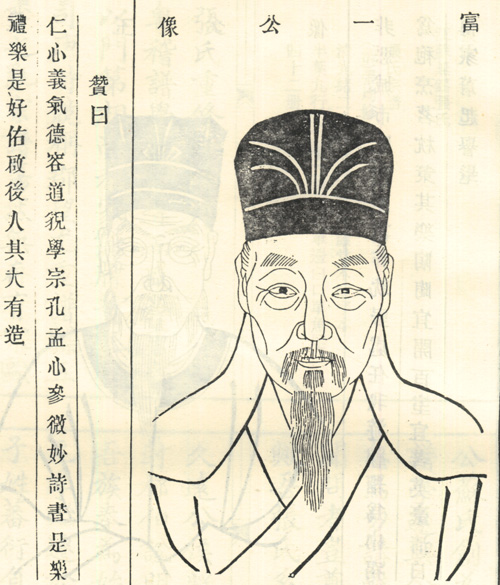 富一公像
贊曰
仁心義氣德容道貌學宗孔孟心參微妙詩書是樂
禮樂是好佑啟後人其大有造